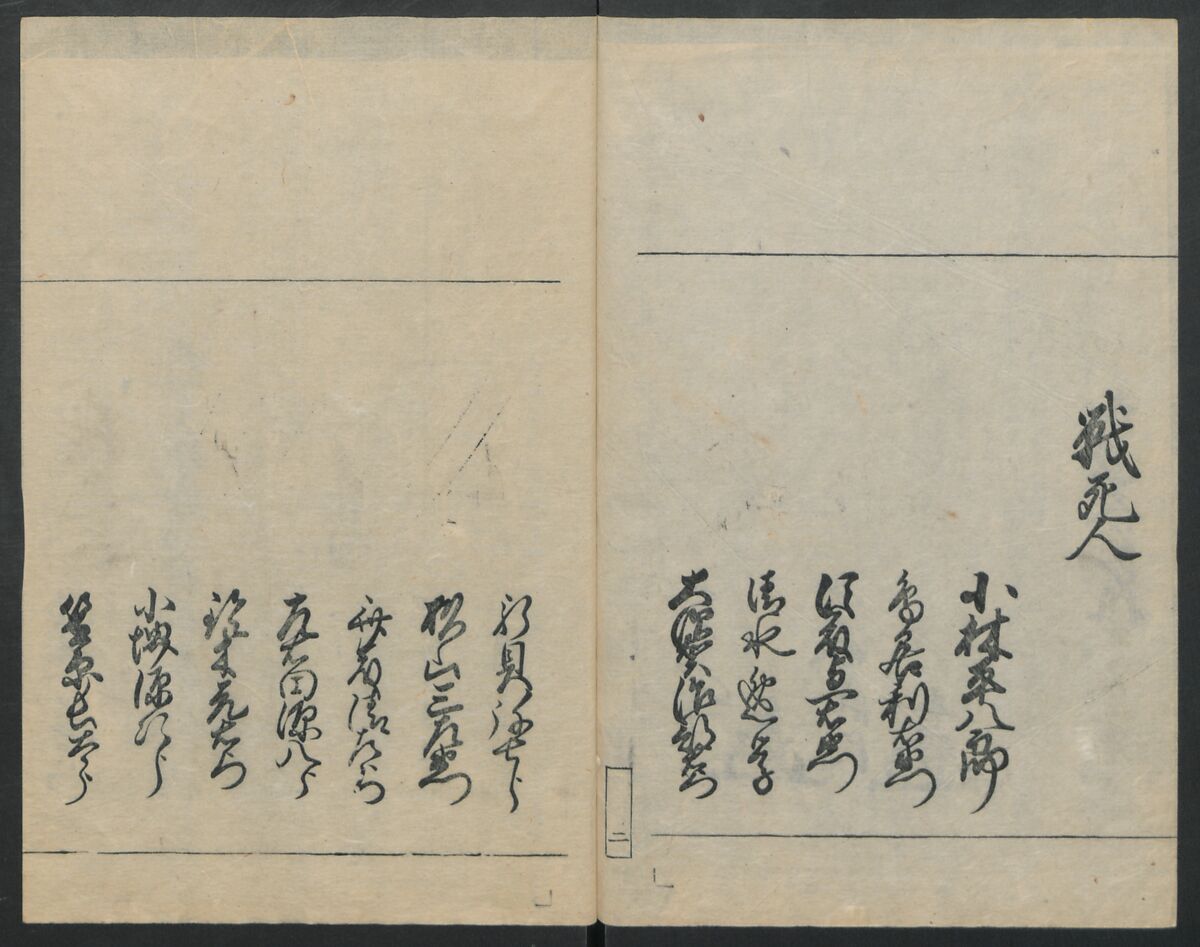 戦死人
小林平八郎
鳥居利右衛門
須藤与一右衛門
清水逸学
大須賀治部右衛門
二
新貝弥七郎
松山三左衛門
斎藤清左衛門
左右田源八郎
鈴木元右衛門
源次郎
笠原長太郎